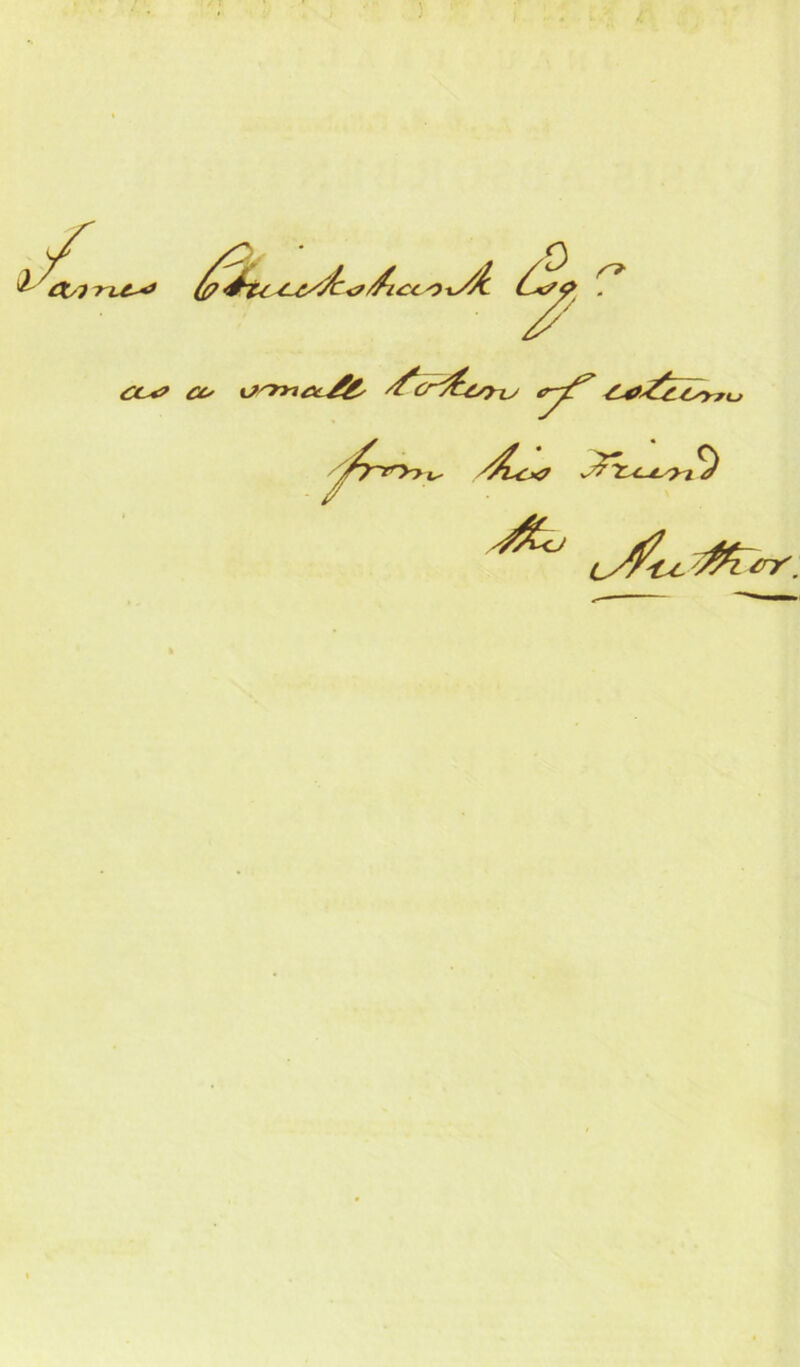 James Cruickshank Esqr.
as a small token of esteem
from his Friend
the Author.